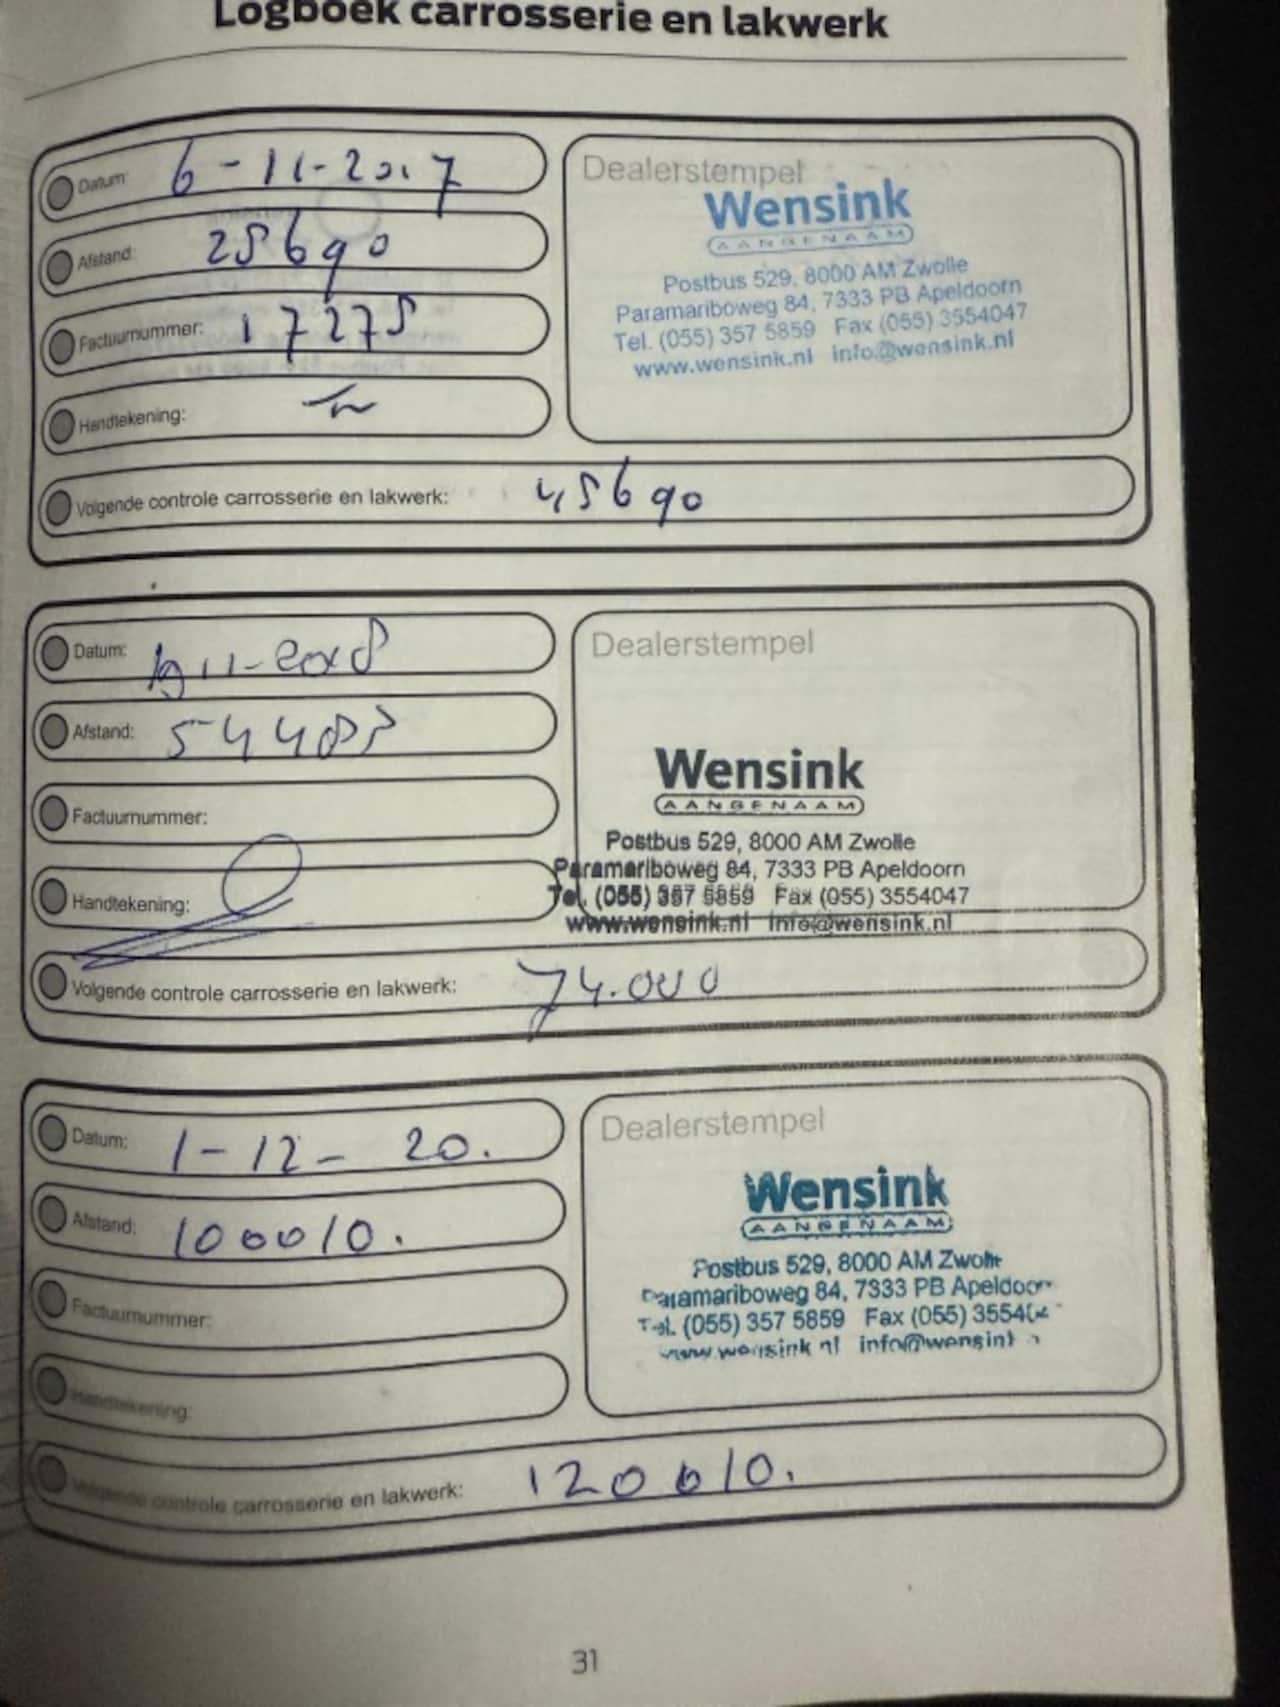 Logboek carrosserie en lakwerk
Datum: 6-11-2017
Afstand: 25690
Factuurnummer: 17275
Handtekening:
Dealerstempel
Wensink
AANGENAAM
Postbus 529, 8000 AM Zwolle
Paramariboweg 84, 7333 PB Apeldoorn
Tel. (055) 357 5859 Fax (055) 3554047
www.wensink.nl info@wensink.nl
Volgende controle carrosserie en lakwerk: 45690
Datum: 19 11-2018
Afstand:
Factuurnummer:
Handtekening:
Dealerstempel
Wensink
AANGENAAM
Postbus 529, 8000 AM Zwolle
Paramariboweg 84, 7333 PB Apeldoorn
Tel. (055) 357 5859 Fax (055) 3554047
www.wensink.nl info@wensink.nl
Volgende controle carrosserie en lakwerk: 74.000
Datum: 1-12- 20.
Afstand: 100010.
Factuurnummer:
Handtekening:
Dealerstempel
Wensink
AANGENAAM
Postbus 529, 8000 AM Zwolle
Paramariboweg 84, 7333 PB Apeldoor
Tel. (055) 357 5859 Fax (055) 35540
www.wensink nl info@wensink
Volgende controle carrosserie en lakwerk: 120010.
31